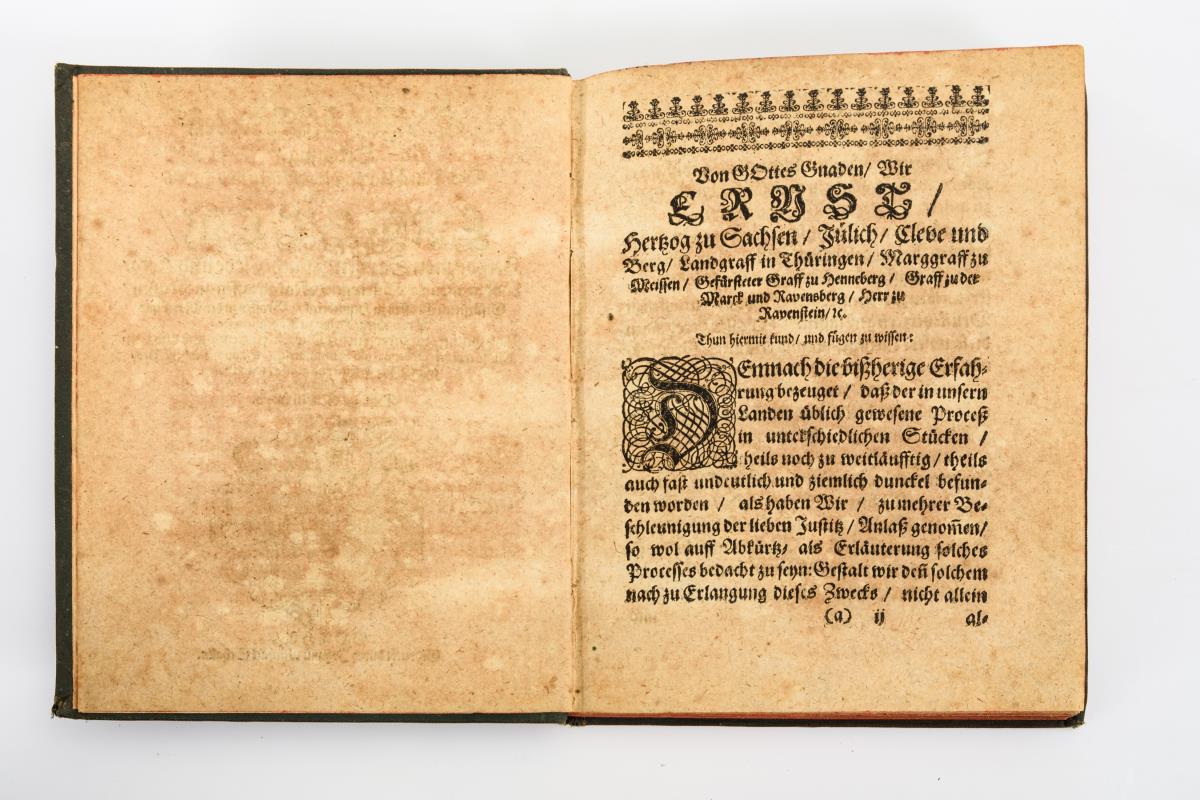 Von GOttes Gnaden/ Wir
ERNST/
Hertzog zu Sachsen / Jülich/ Cleve und
Berg/ Landgraff in Thüringen/ Marggraff zu
Meissen/ Gefürsteter Graff zu Henneberg/ Graff zu der
Marck und Ravensberg/ Herr zu
Ravenstein/ ꝛc.
Thun hiermit kund/ und fügen zu wissen:
DEmnach die bißherige Erfah-
rung bezeuget / daß der in unsern
Landen üblich gewesene Proceß
in unterschiedlichen Stücken /
theils noch zu weitläufftig/ theils
auch fast undeutlich und ziemlich dunckel befun-
den worden / als haben Wir / zu mehrer Be-
schleunigung der lieben Justitz/ Anlaß genom̄en/
so wol auff Abkürtz- als Erläuterung solches
Processes bedacht zu seyn: Gestalt wir den̄ solchem
nach zu Erlangung dieses Zwecks / nicht allein
(a) ij al-